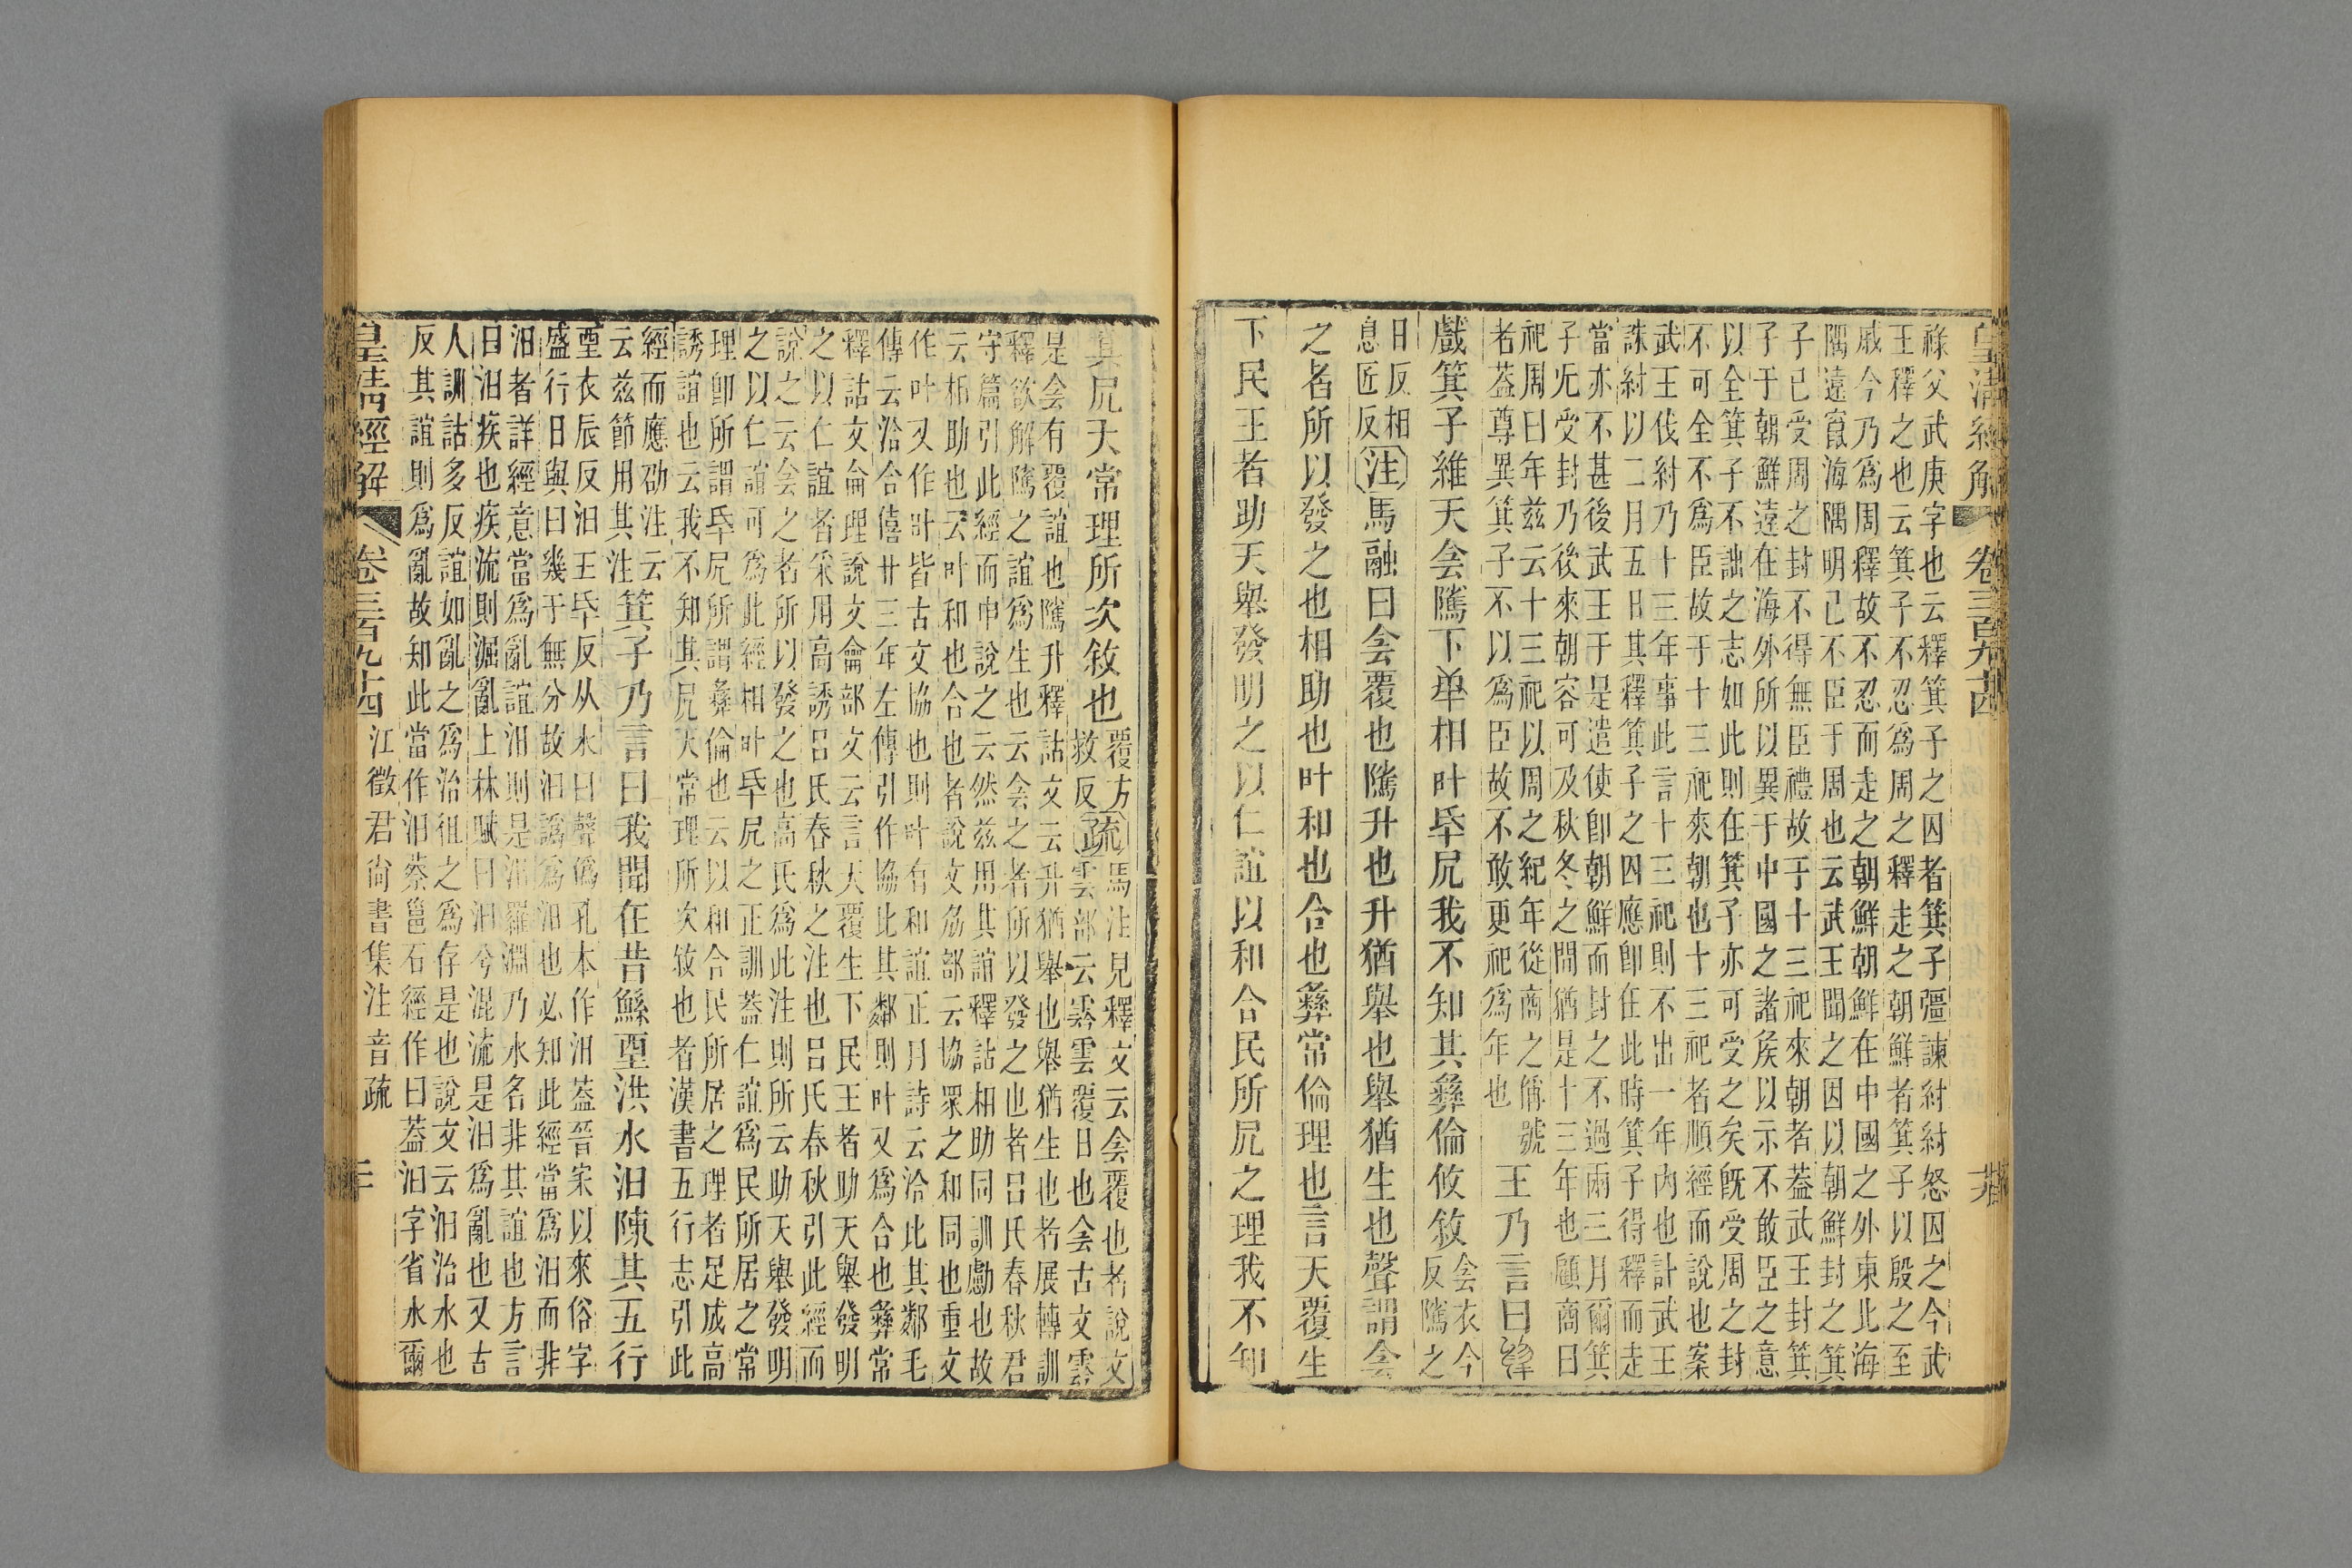 皇清經解 卷三百九十四
祿父武庚字也云釋箕子之囚者箕子彊諫紂紂怒囚之今武
王釋之也云箕子不忍爲周之釋走之朝鮮者箕子以殷之至
戚今乃爲周釋故不忍而走之朝鮮朝鮮在中國之外東北海
隅遠竄海隅明已不臣于周也云武王聞之因以朝鮮封之箕
子已受周之封不得無臣禮故于十三祀來朝者葢武王封箕
子于朝鮮遠在海外所以異于中國之諸矦以示不敢臣之意
以全箕子不詘之志如此則在箕子亦可受之矣旣受周之封
不可全不爲臣故于十三祀來朝也十三祀者順經而說也案
武王伐紂乃十三年事此言十三祀則不出一年内也計武王
誅紂以二月五日其釋箕子之囚應卽在此時箕子得釋而走
當亦不甚後武王于是遣使卽朝鮮而封之不過兩三月爾箕
子旡受封乃後來朝容可及秋冬之閒猶是十三年也顧商曰
祀周曰年兹云十三祀以周之紀年從商之偁號
者葢尊異箕子不以爲臣故不敢更祀爲年也
王乃言曰
戲箕子維天侌隲下相叶氒凥我不知其彝倫攸敘
侌衣今
反隲之
日反相
息匠反
注馬融曰侌覆也隲升也升猶舉也舉猶生也聲謂侌
之者所以發之也相助也叶和也合也彝常倫理也言天覆生
下民王者助天舉發明之以仁誼以和合民所凥之理我不知
其凥大常理所次敘也
覆方
救反
疏
馬注見釋文云侌覆也者說文
雲部云霒雲覆日也侌古文霒
是侌有覆誼也隲升釋詁文云升猶舉也舉猶生也者展轉訓
釋欲解隲之誼爲生也云侌之者所以發之也者吕氏春秋君
守篇引此經而申說之云然兹用其誼釋詁相助同訓勴也故
云相助也云叶和也合也者說文劦部云協眾之和同也重文
作叶又作叶皆古文協也則叶有和誼正月詩云洽比其鄰毛
傳云洽合僖廿二年左傳引作協比其鄰則叶又爲合也彝常
釋詁文倫理說文侖部文云言天覆生下民王者助天舉發明
之以仁誼者采用高誘吕氏春秋之注也吕氏春秋引此經而
說之云侌之者所以發之也高氏爲此注則所云助天舉發明
之以仁誼可爲此經相叶氒凥之正訓葢仁誼爲民所居之常
理卽所謂氒凥所謂彝倫也云以和合民所居之理者足成高
誘誼也云我不知其凥大常理所次敘也者漢書五行志引此
經而應劭注云
云兹節用其注
箕子乃言曰我聞在昔鯀垔洪水汨陳其五行
垔衣辰反汨王氒反从水曰聲僞孔本作汨葢晉宋以來俗字
盛行日與曰幾于無分故汨譌爲汨也必知此經當爲汨而非
汨者詳經意當爲亂誼汨則是汨羅淵乃水名非其誼也方言
曰汨疾也疾流則淈亂上林賦曰汨兮混流是汨爲亂也又古
人訓詁多反誼如亂之爲治徂之爲存是也說文云汨治水也
反其誼則爲亂故知此當作汨蔡邕石經作曰葢汨字省水爾
皇清經解 卷三百九十四 江徵君尙書集注音疏